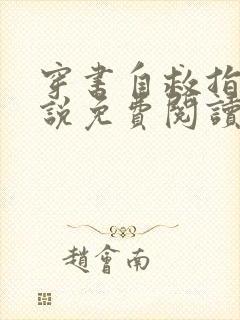 穿書自救指
說免費閱讀
趙會南